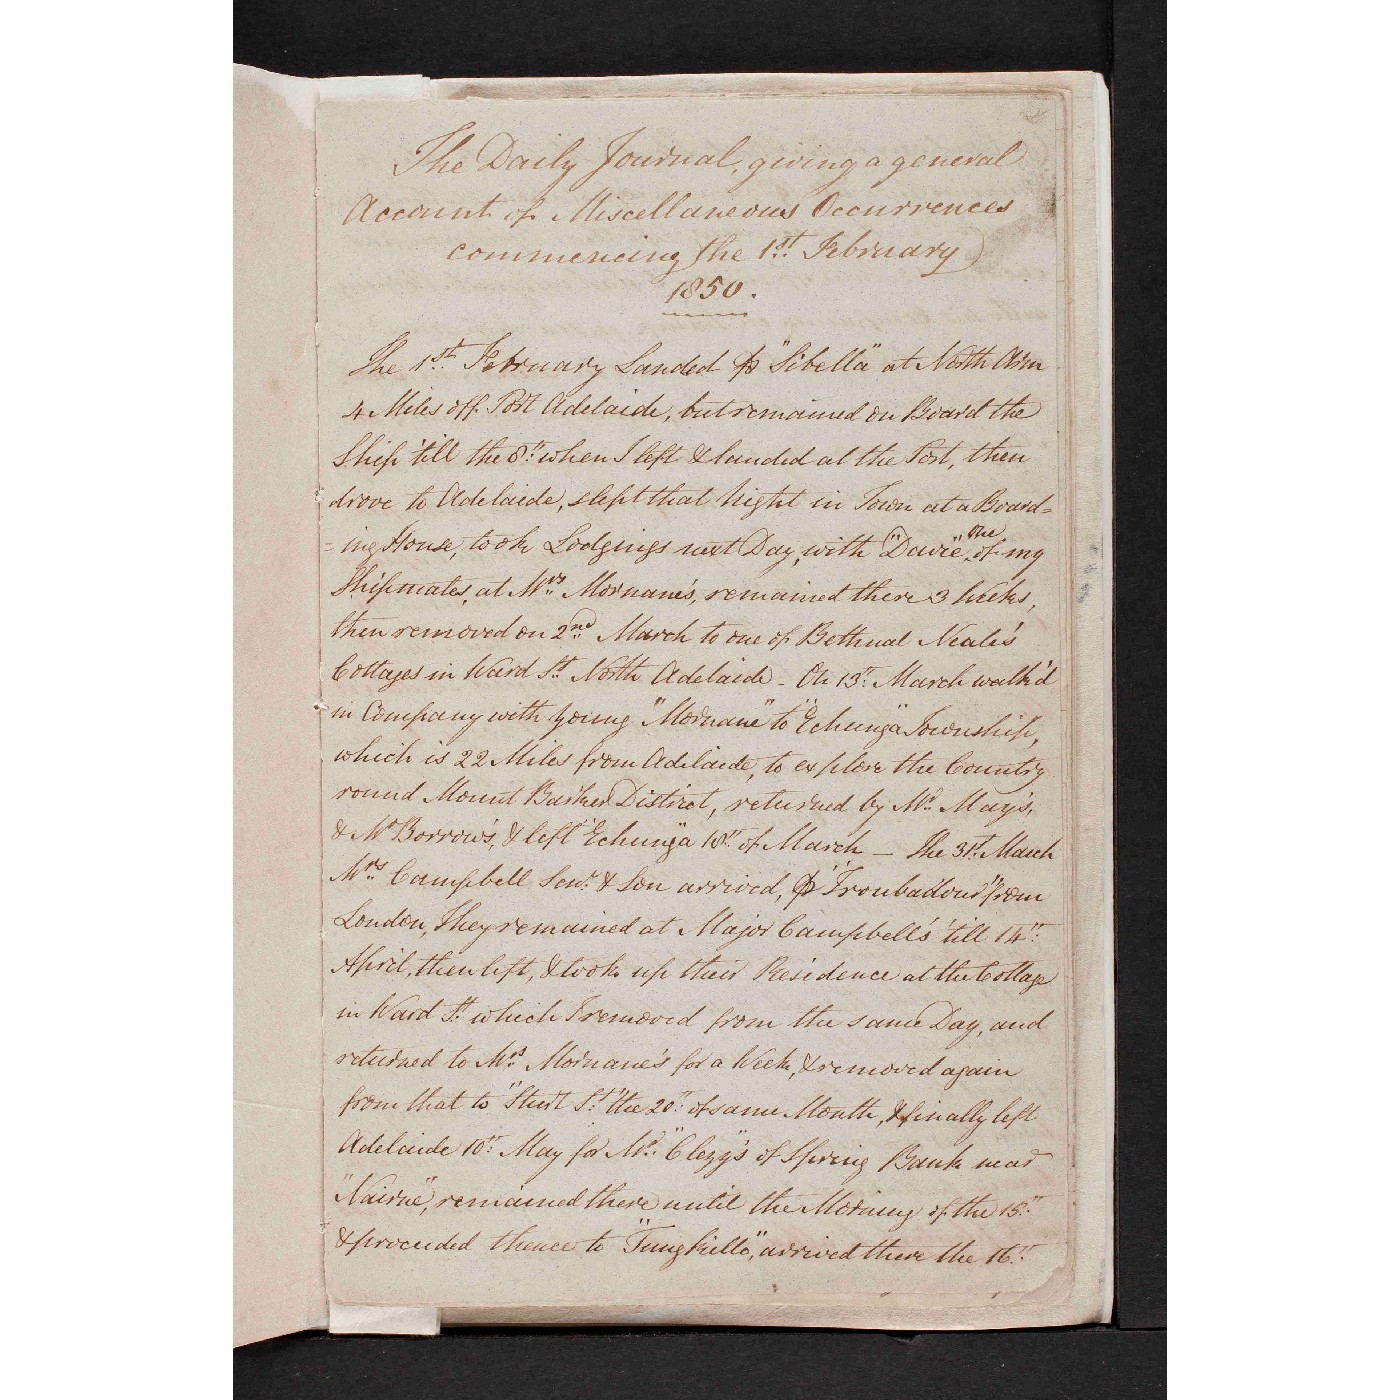 The Daily Journal, giving a general
Account of Miscellaneous Occurrences
commencing the 1st. February
1850.
The 1st. February Landed p "Sibella" at North Arm
4 Miles off Port Adelaide, but remained on Board the
Ship 'till the 8th. when I left & landed at the Port, then
drove to Adelaide, slept that Night in Town at a Board=
=ing House, took Lodgings next Day, with "Davie", one of my
Shipmates, at Mrs. Mornane's, remained there 3 Weeks,
then removed on 2nd. March to one of Bethual Neale's
Cottages in Ward St. North Adelaide - On 13th. March walk'd
in Company with young "Mornane" to "Echunga" Township,
which is 22 Miles from Adelaide, to explore the Country
round Mount Barker District, returned by Mr. May's,
& Mr Borrow's, & left "Echunga" 18th. of March — The 31st. March
Mrs. Campbell Senr. & Son arrived, p "Troubadour" from
London, They remained at Major Campbell's 'till 14th.
April, then left, & took up their Residence at the Cottage
in Ward St. which I removed from the same Day, and
returned to Mrs. Mornane's for a Week, & removed again
from that to "Sturt St." the 20th. of same Month, & finally left
Adelaide 10th. May for Mr. "Clezy's" of Spring Bank near
"Nairne", remained there until the Morning of the 15th.
& proceeded thence to "Tungkillo", arrived there the 16th.